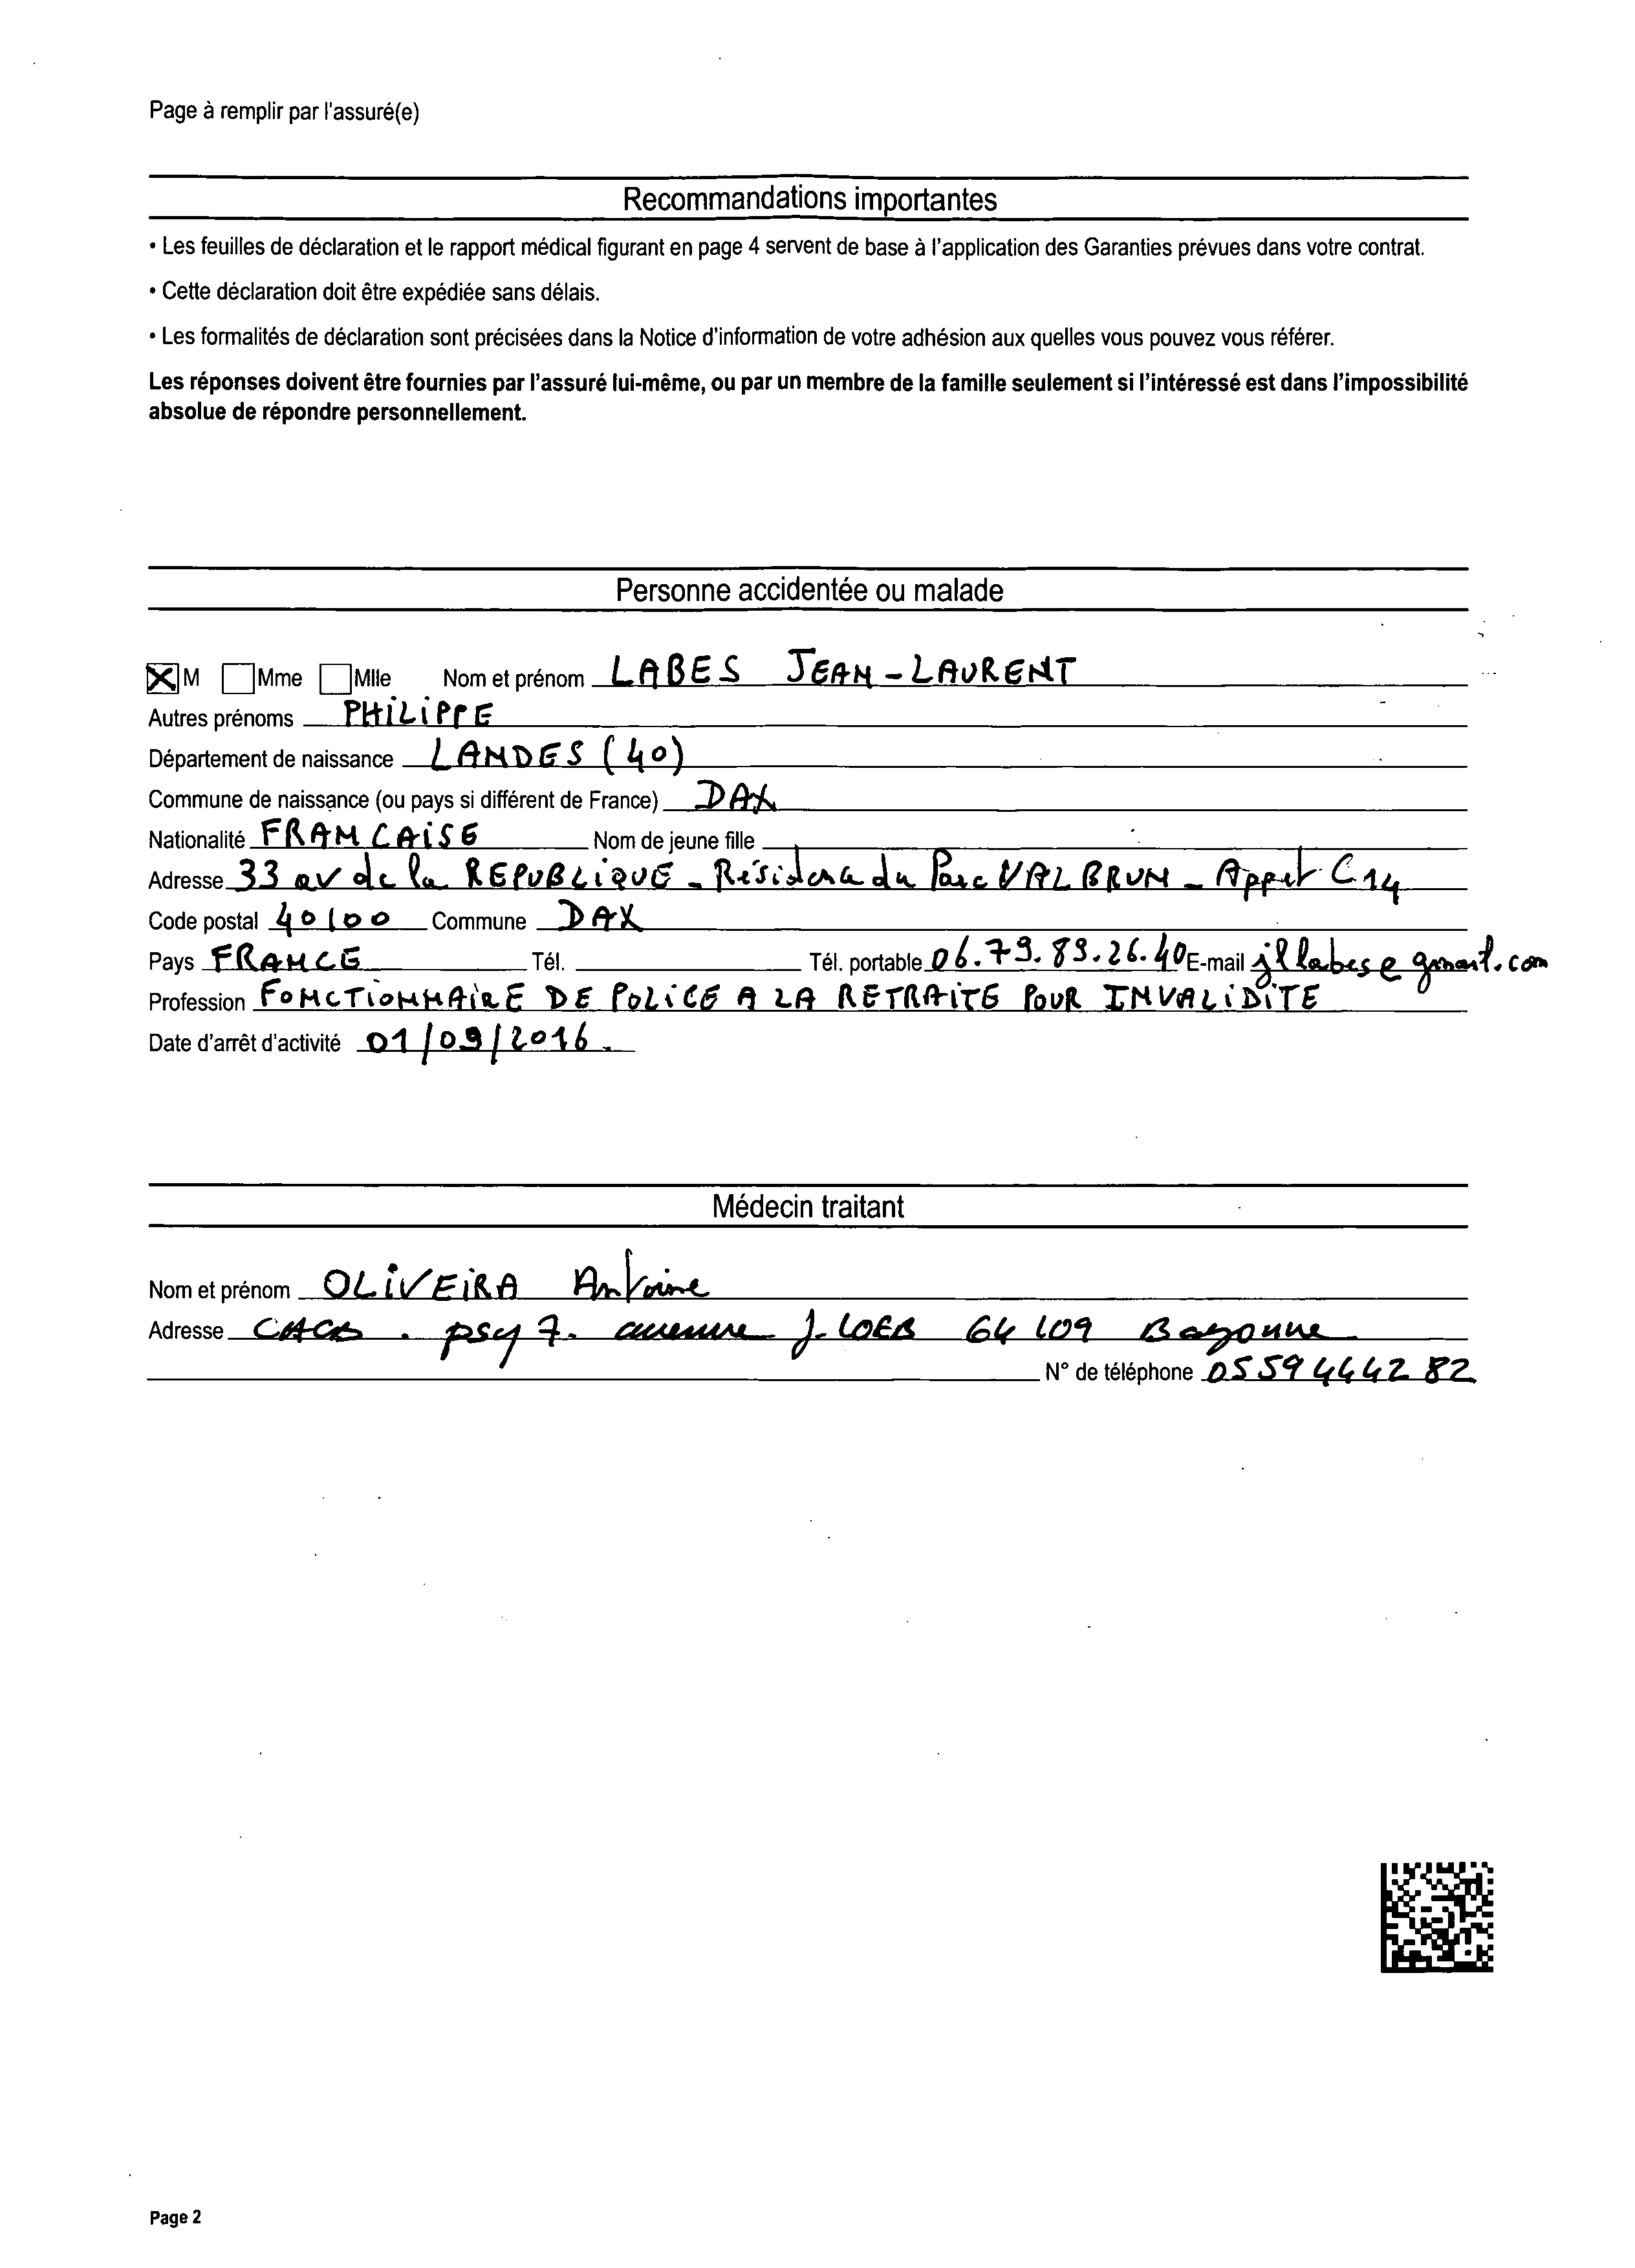 Page à remplir par l'assuré(e)
Recommandations importantes
• Les feuilles de déclaration et le rapport médical figurant en page 4 servent de base à l'application des Garanties prévues dans votre contrat.
• Cette déclaration doit être expédiée sans délais.
• Les formalités de déclaration sont précisées dans la Notice d'information de votre adhésion aux quelles vous pouvez vous référer.
Les réponses doivent être fournies par l'assuré lui-même, ou par un membre de la famille seulement si l'intéressé est dans l'impossibilité
absolue de répondre personnellement.
Personne accidentée ou malade
M Mme Mlle Nom et prénom LABES JEAN-LAURENT
Autres prénoms PHILIPPE
Département de naissance LANDES (40)
Commune de naissance (ou pays si différent de France) DAX
Nationalité FRANCAISE Nom de jeune fille
Adresse 33 av de la REPUBLIQUE - Résidence du Parc VALBRUN - Appet C14
Code postal 40100 Commune DAX
Pays FRANCE Tél. Tél. portable 06.79.89.26.40 E-mail jllabes@gmail.com
Profession FONCTIONNAIRE DE POLICE A LA RETRAITE POUR INVALIDITE
Date d'arrêt d'activité 01/09/2016.
Médecin traitant
Nom et prénom OLIVEIRA Antoine
Adresse psy 7. avenue J. LOEB 64109 Bayonne
N° de téléphone 05 59 44 42 82
Page 2